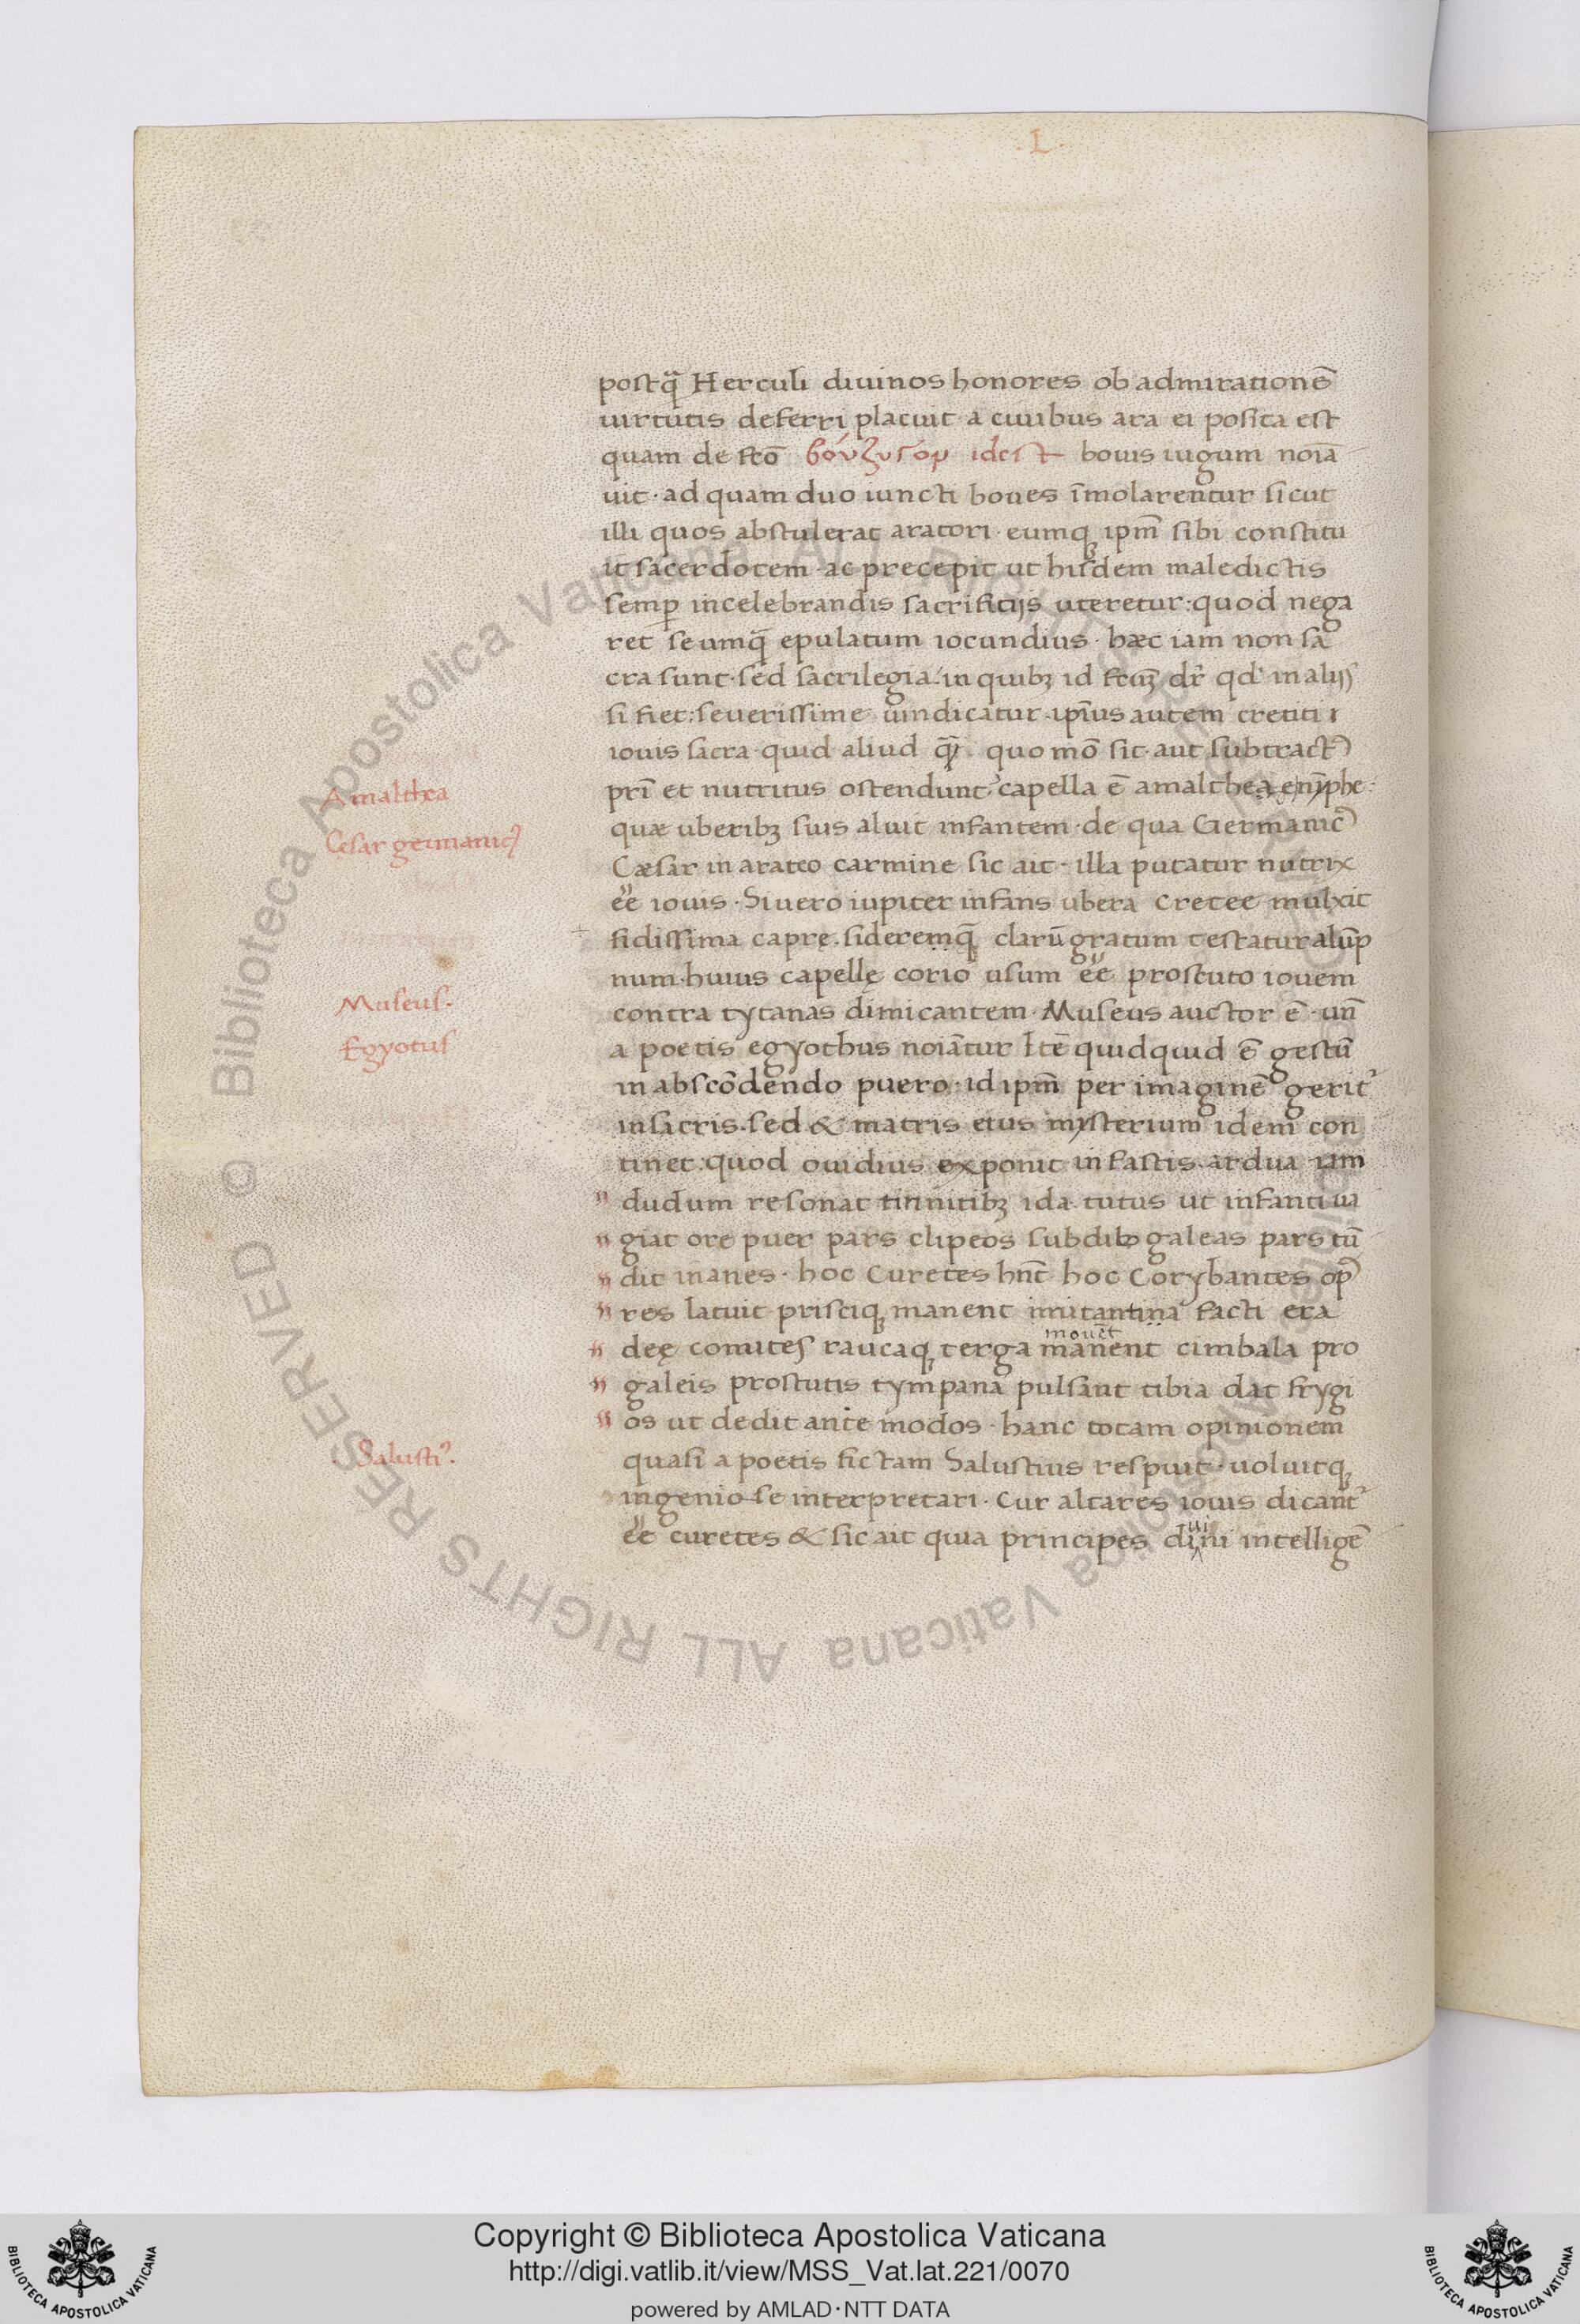 .L.
postq̃ Herculi diuinos honores ob admirationē
uirtutis deferri placuit a ciuibus ara ei posita est
quam de fc̃o βούζυγομ idest bouis iugum noiā
uit · ad quam duo iuncti boues īmolarentur sicut
illi quos abstulerat aratori · eumq; ip̃m sibi constitu
it sacerdotem · ac precepit ut hisdem maledictis
semp̱ incelebrandis sacrificijs uteretur: quod nega
ret se umq̃ epulatum iocundius · hæc iam non sa
cra sunt · sed sacrilegia · in quibꝫ id dr̃ qd' in alijs
si fiet: seuerissime uindicatur · ip̃ius autem cretici
iouis sacra quid aliud quo mō sit aut subtractꝰ
pr̃i et nutritus ostendunt · capella ē amaltheę nymphe:
quæ uberibꝫ suis aluit infantem · de qua Germanicꝰ
Cæsar in arateo carmine sic ait · illa putatur nutrix
eē iouis · Si uero iupiter infans ubera cretee mulxit
fidissima capre · sideremq̃ clarū gratum testatur alūp
num · huius capellę corio usum eē proscuto iouem
contra tytanas dimicantem · Museus auctor ē · un̄
a poetis egyothus noiātur Itē quidquid ē gestū
in abscōdendo puero · id ip̃m per imaginē gerit᷑
insacris · sed & matris eius mysterium idem con
tinet: quod ouidius exponit in fastis · ardua iam
dudum resonat tinnitibꝫ ida tutus ut infanti ua
giat ore puer pars clipeos subdibꝰ galeas pars tū
dit inanes · hoc Curetes hn̄t hoc Corybantes op̱
res latuit priscique manent imitantina facti era
deę comites raucaq; terga manent cimbala pro
mouēt
galeis proscutis tympana pulsant tibia dat frygi
os ut dedit ante modos · hanc totam opinionem
quasi a poetis fictam Salustius respuit · uoluitq;
ingenio se interpretari · Cur altares iouis dicant᷑
eē curetes & sic ait quia principes diuini intelligē
Amalthea
Cesar germanicꝰ
Museus ·
Egyotus
Salustiꝰ ·
© Biblioteca Apostolica Vaticana ALL RIGHTS RESERVED
Copyright © Biblioteca Apostolica Vaticana
http://digi.vatlib.it/view/MSS_Vat.lat.221/0070
powered by AMLAD·NTT DATA
BIBLIOTECA APOSTOLICA VATICANA
BIBLIOTECA APOSTOLICA VATICANA